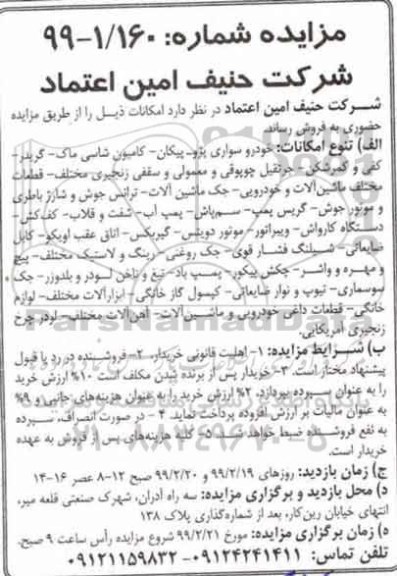 مزایده شماره: ۹۹-۱/۱۶۰
شرکت حنیف امین اعتماد
شــرکت حنیف امین اعتماد در نظر دارد امکانات ذیـل را از طریق مزایده
حضوری به فروش رساند.
الف) تنوع امکانات: خودرو سواری پژو-پیکان- کامیون شاسی ماک- گریدر-
کفی و کمرشکن- جرثقیل چوپوقی و معمولی و سقفی زنجیری مختلف- قطعات
مختلف ماشین‌آلات و خودرویی- جک ماشین آلات- ترانس جوش و شارژ باطری
و موتور جوش- گریس پمپ- سم‌پاش- پمپ آب- شفت و قلاب- کف‌کش-
دستگاه کارواش- ویبراتور- موتور دویتس- گیربکس- اتاق عقب اویکو- کابل
ضایعاتی- شــیلنگ فشـار قوی- جک روغنی - رینگ و لاستیک مختلف- پیچ
و مهـره و واشـر- چکش پیکور- پمــپ باد- تیغ و ناخن لـودر و بلدوزر- جک
سوسماری- تیوپ و نوار ضایعاتی- کپسول گاز خانگی- ابزارآلات مختلف- لوازم
خانگی- قطعات داغی خودرویی و ماشین‌آلات- آهن‌آلات مختلف- لودر چرخ
زنجیری آمریکایی.
ب) شــرایط مزایده: ۱- اهلیت قانونی خریدار. ۲- فروشـنده در رد یا قبول
پیشنهاد مختار است. ۳- خریدار پس از برنده شدن مکلف است ۱۰٪ ارزش خرید
را به عنوان سـپرده بپردازد. ۲٪ ارزش خرید را به عنوان هزینه‌های جانبی و ۹٪
به عنوان مالیات بر ارزش افزوده پرداخت نماید. ۴- در صورت انصراف، سـپرده
به نفع فروشـنده ضبط خواهد شـد. ۵- کلیه هزینه‌های پس از فروش به عهده
خریدار است.
ج) زمان بازدید: روزهای ۹۹/۲/۱۹ و ۹۹/۲/۲۰ صبح ۱۲-۸ عصر ۱۶-۱۴
د) محل بازدید و برگزاری مزایده: سه راه آدران، شهرک صنعتی قلعه میر،
انتهای خیابان رین‌کار، بعد از شماره‌گذاری پلاک ۱۳۸
ه) زمان برگزاری مزایده: مورخ ۹۹/۲/۲۱ شروع مزایده رأس ساعت ۹ صبح.
تلفن تماس: ۰۹۱۲۴۲۴۱۴۱۱-۰۹۱۲۱۱۵۹۸۳۲
ParsNamadData
۰۲۱-۸۸۳۴۹۶۷۰-۵